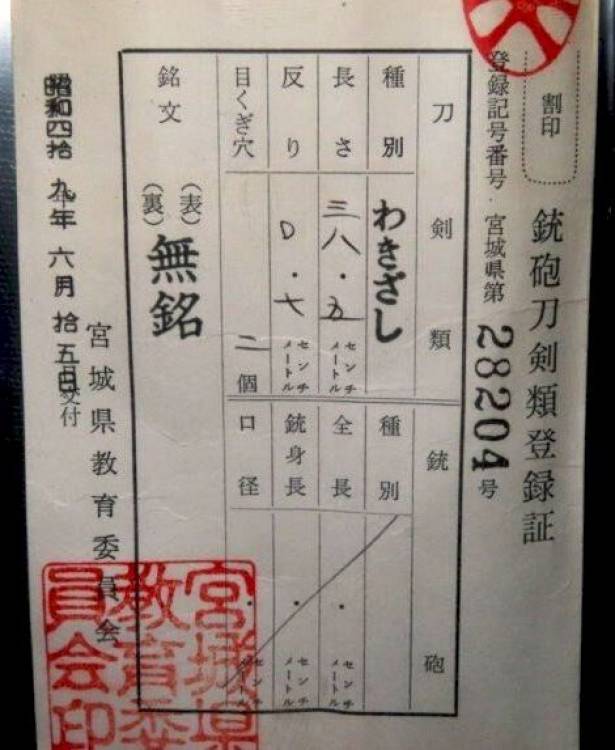 割印
銃砲刀剣類登録証
登録記号番号 宮城県第28204号
刀剣類
種別 わきざし
長さ 三八・五 センチメートル
反り 〇・七 センチメートル
目くぎ穴 二個
銃砲
種別
全長 ・ センチメートル
銃身長 ・ センチメートル
口径 ・ センチメートル
銘文 (表)
(裏) 無銘
昭和四拾九年六月拾五日交付
宮城県教育委員会
宮城県
教育委
員会印